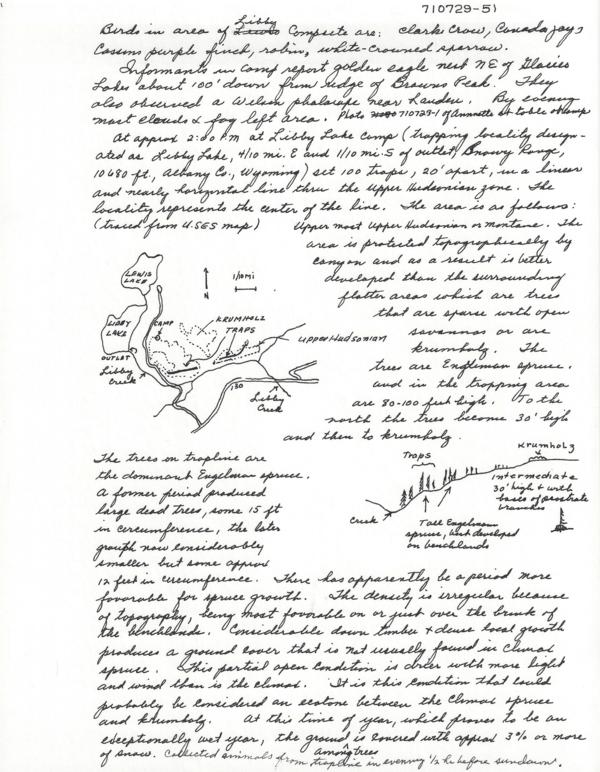 710729-51
Birds in area of Libby Campsite are: clarks crow, Canada jay,
Cassins purple finch, robin, white-crowned sparrow.
Informants in camp report golden eagle nest NE of Glacier
Lakes about 100' down from ridge of Browns Peak. They
also observed a Wilson phalarope near Laradon. By evening
most clouds & fog left area. Photo 710729-1 of Annette at table at camp
At approx 2:00 PM at Libby Lake Camp (trapping locality design-
ated as Libby Lake, 4/10 mi. E and 1/10 mi. S of outlet, Snowy Range,
10680 ft., Albany Co., Wyoming) set 100 traps, 20' apart, in a linear
and nearly horizontal line thru the Upper Hudsonian zone. The
locality represents the center of the line. The area is as follows:
(traced from U.SGS map) Upper most Upper Hudsonian or montane. The
area is protected topographically by
canyon and as a result is better
developed than the surrounding
flatter areas which are trees
that are sparse with open
savannas or are
krumholz. The
trees are Engleman spruce.
and in the trapping area
are 80-100 feet high. To the
north the trees become 30' high
and then to krumholz.
LEWIS
LAKE
N
1/10 mi
LIBBY
LAKE
CAMP
KRUMHOLZ
TRAPS
Upper Hudsonian
OUTLET
Libby
Creek
130
Libby
Creek
The trees on trapline are
the dominant Engelman spruce.
A former period produced
large dead trees, some 15 ft
in circumference, the later
growth now considerably
smaller but some approx
12 feet in circumference. There has apparently be a period more
favorable for spruce growth. The density is irregular because
of topography, being most favorable on or just over the brink of
the benchlands. Considerable down timber & dense local growth
produces a ground cover that is not usually found in climax
spruce. This partial open condition is drier with more light
and wind than is the climax. It is this condition that could
probably be considered an ecotone between the climax spruce
and krumholz. At this time of year, which proves to be an
exceptionally wet year, the ground is covered with approx 3% or more
of snow. among trees
Collected animals from trapline in evening 1/2 hr before sundown.
Traps
Krumholz
Intermediate
30' high & with
bases of prostrate
branches
Creek
Tall Engelman
spruce, best developed
on benchlands